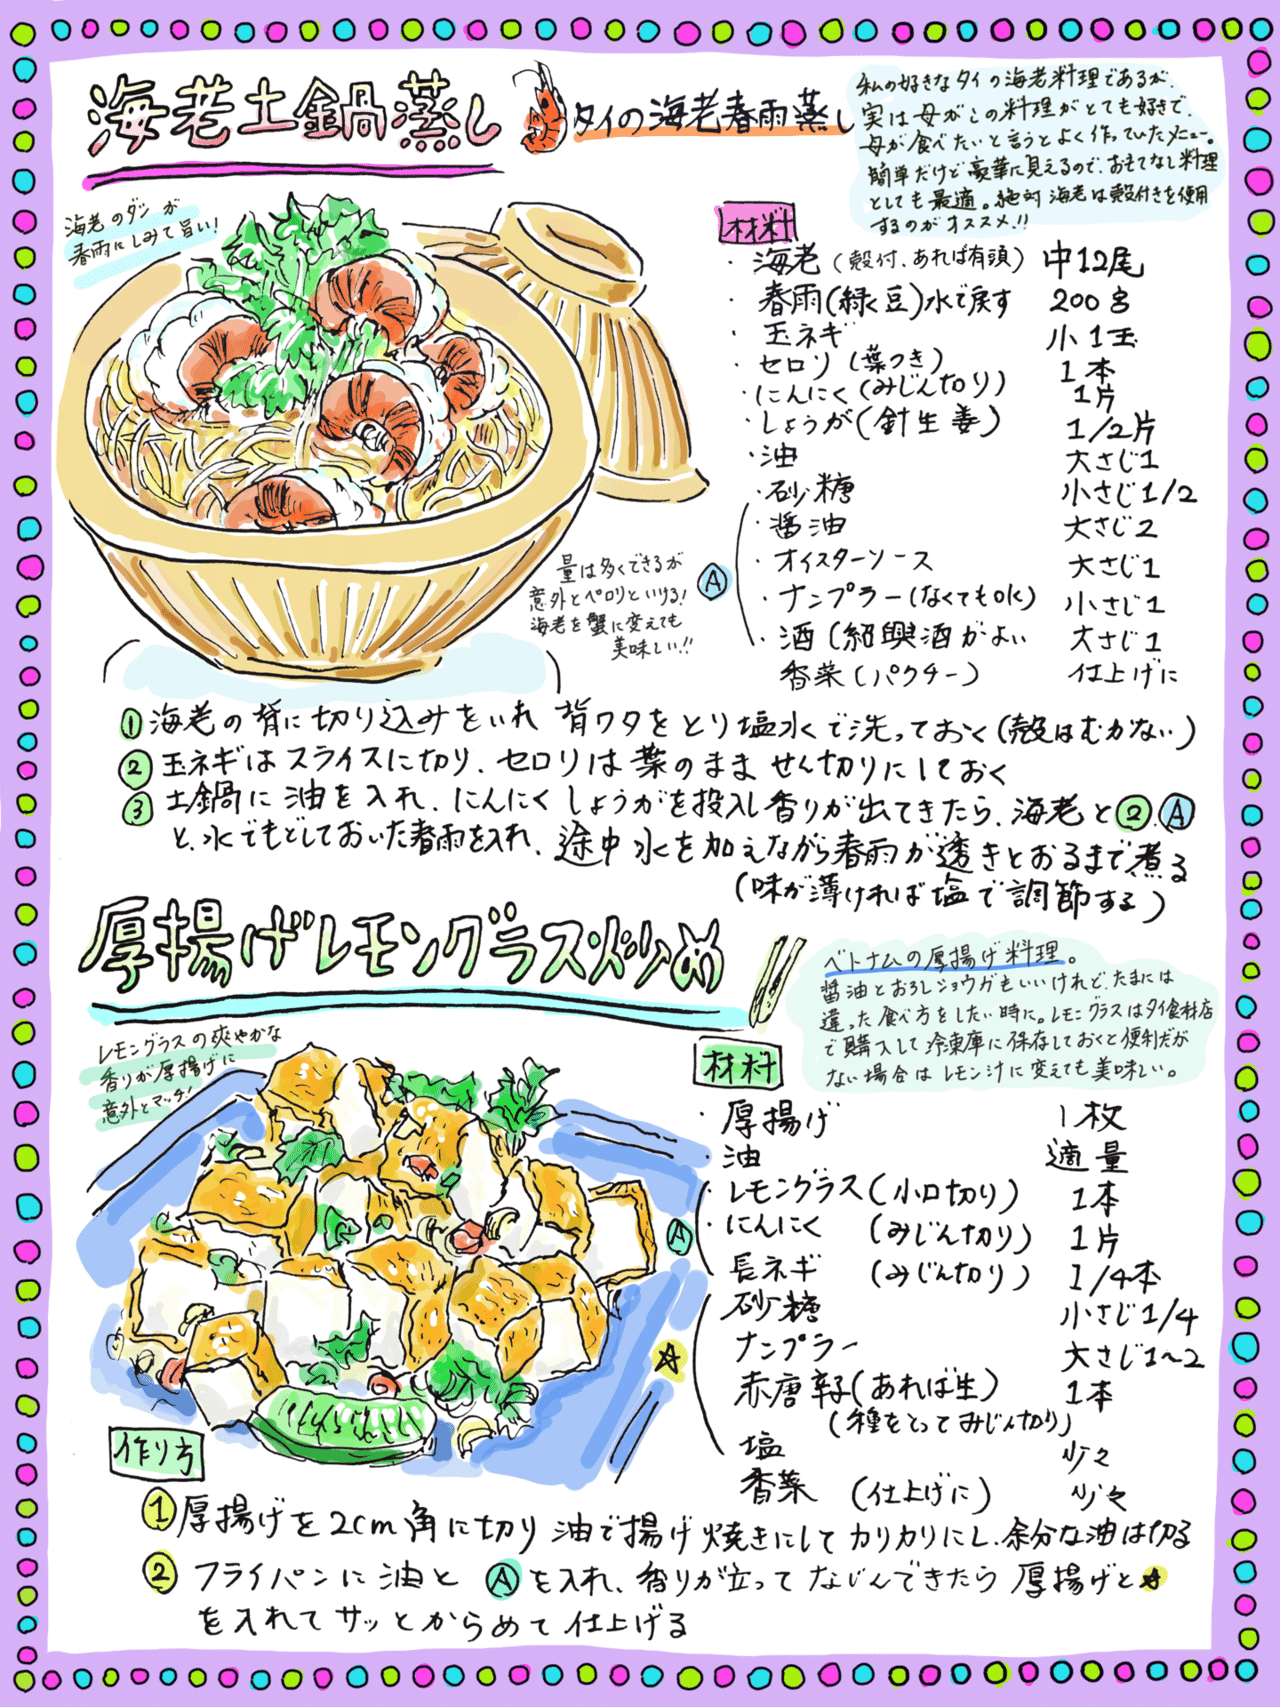 海老土鍋蒸し
タイの海老春雨蒸し
私の好きなタイの海老料理であるが、
実は母がこの料理がとても好きで、
母が食べたいと言うとよく作っていたメニュー。
簡単だけど豪華に見えるので、おもてなし料理
としても最適。絶対海老は殻付きを使用
するのがオススメ!!
海老のダシが
春雨にしみて旨い!
材料
・海老(殻付、あれば有頭) 中12尾
・春雨(緑豆)水で戻す 200g
・玉ネギ 小1玉
・セロリ(葉つき) 1本
・にんにく(みじん切り) 1片
・しょうが(針生姜) 1/2片
・油 大さじ1
・砂糖 小さじ1/2
・醤油 大さじ2
・オイスターソース 大さじ1
Ⓐ
・ナンプラー(なくてもOK) 小さじ1
・酒(紹興酒がよい 大さじ1
香菜(パクチー) 仕上げに
量は多くできるが
意外とペロリといける!
海老を蟹に変えても
美味しい!!
①海老の背に切り込みをいれ背ワタをとり塩水で洗っておく(殻はむかない)
②玉ネギはスライスに切り、セロリは葉のまません切りにしておく
③土鍋に油を入れ、にんにくしょうがを投入し香りが出てきたら、海老と②、Ⓐ
と、水でもどしておいた春雨を入れ、途中水を加えながら春雨が透きとおるまで煮る
(味が薄ければ塩で調節する)
厚揚げレモングラス炒め
ベトナムの厚揚げ料理。
醤油とおろしショウガもいいけれど、たまには
違った食べ方をしたい時に。レモングラスはタイ食材店
で購入して冷凍庫に保存しておくと便利だが
ない場合はレモン汁に変えても美味しい。
レモングラスの爽やかな
香りが厚揚げに
意外とマッチ!
材料
・厚揚げ 1枚
・油 適量
・レモングラス(小口切り) 1本
・にんにく (みじん切り) 1片
Ⓐ
長ネギ (みじん切り) 1/4本
砂糖 小さじ1/4
ナンプラー 大さじ1~2
☆
赤唐辛子(あれば生) 1本
(種をとってみじん切り)
塩 少々
香菜 (仕上げに) 少々
作り方
①厚揚げを2cm角に切り油で揚げ焼きにしてカリカリにし、余分な油は切る
②フライパンに油とⒶを入れ、香りが立ってなじんできたら厚揚げと☆
を入れてサッとからめて仕上げる